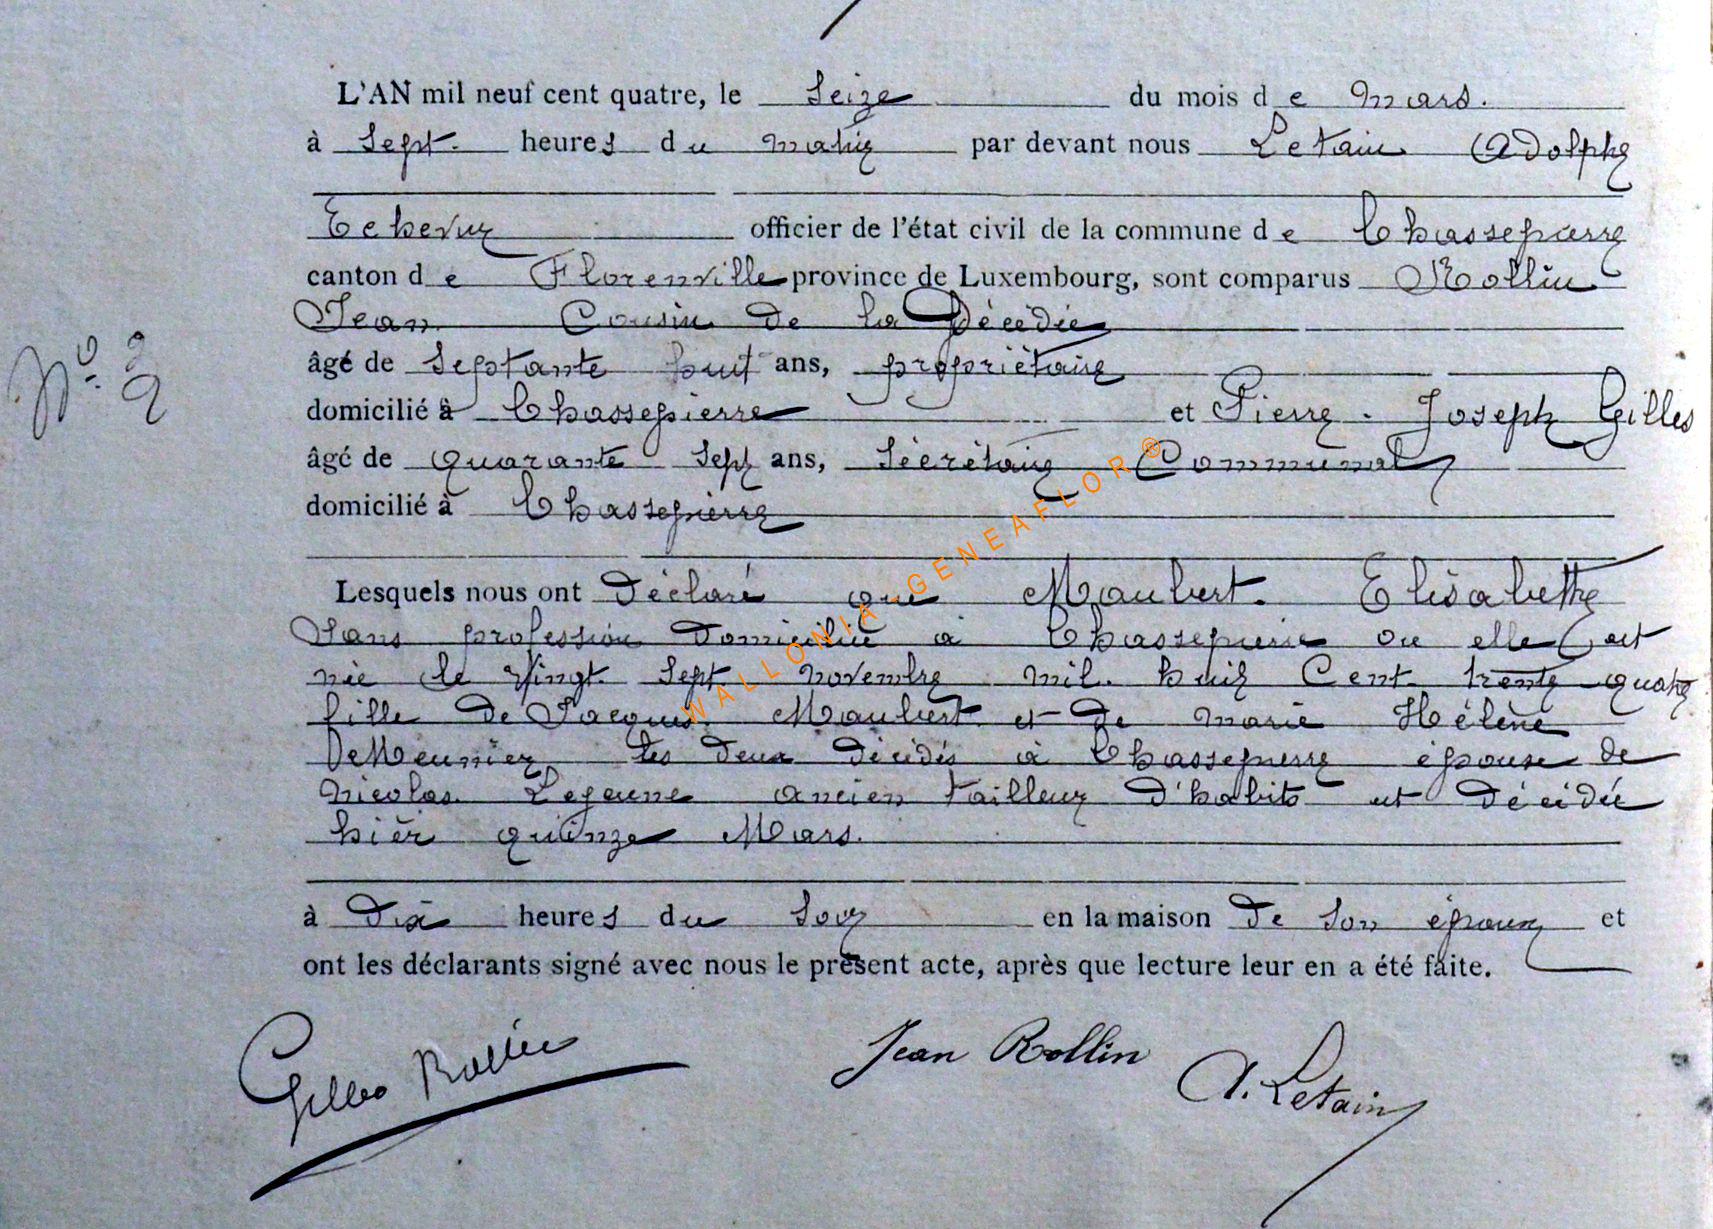 L'AN mil neuf cent quatre, le seize du mois de mars.
à sept. heures du matin par devant nous Letain Adolphe
Echevin officier de l'état civil de la commune de Chassepierre
canton de Florenville province de Luxembourg, sont comparus Rollin
Jean Cousin de la Décédée
âgé de septante huit ans, propriétaire
domicilié à Chassepierre et Pierre - Joseph Gilles
âgé de quarante sept ans, Sécrétaire Communal
domicilié à Chassepierre
N° 2
Lesquels nous ont Déclaré que Maubert. Elisabeth
Sans profession Domiciliée à Chassepierre ou elle est
née le Vingt. Sept. novembre mil. huit Cent trente quatre
fille de Jacques. Maubert. et de Marie Hélène
DeMeunier les deux décédés à Chassepierre épouse de
Nicolas Lejeune ancien tailleur d'habits est décédée
hier quinze Mars.
à Dix heures du Soir en la maison de son époux et
ont les déclarants signé avec nous le présent acte, après que lecture leur en a été faite.
Gilles Jean Rollin A. Letain
WALLONIA - GENEAFLOR ®